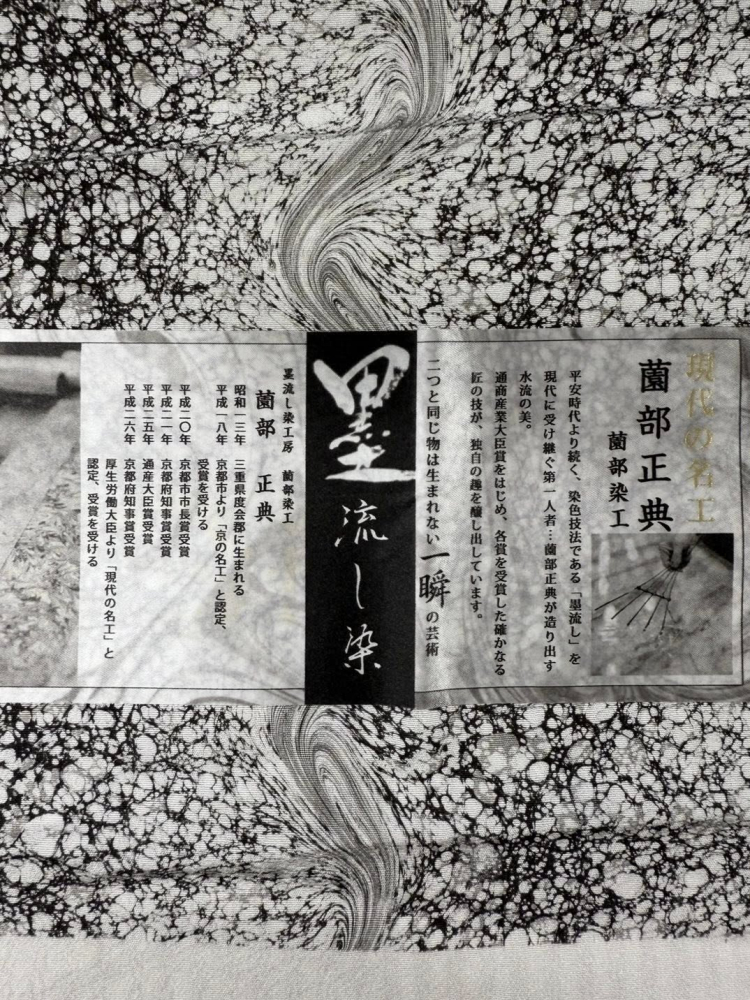 現代の名工
薗部正典
薗部染工
平安時代より続く、染色技法である「墨流し」を
現代に受け継ぐ第一人者…薗部正典が造り出す
水流の美。
通商産業大臣賞をはじめ、各賞を受賞した確かなる
匠の技が、独自の趣を醸し出しています。
二つと同じ物は生まれない一瞬の芸術
墨流し染
墨流し染工房 薗部染工
薗部 正典
昭和一三年 三重県度会郡に生まれる
平成一八年 京都市より「京の名工」と認定、
受賞を受ける
平成二〇年 京都市市長賞受賞
平成二一年 京都府知事賞受賞
平成二五年 通産大臣賞受賞
平成二六年 京都府知事賞受賞
厚生労働大臣より「現代の名工」と
認定、受賞を受ける